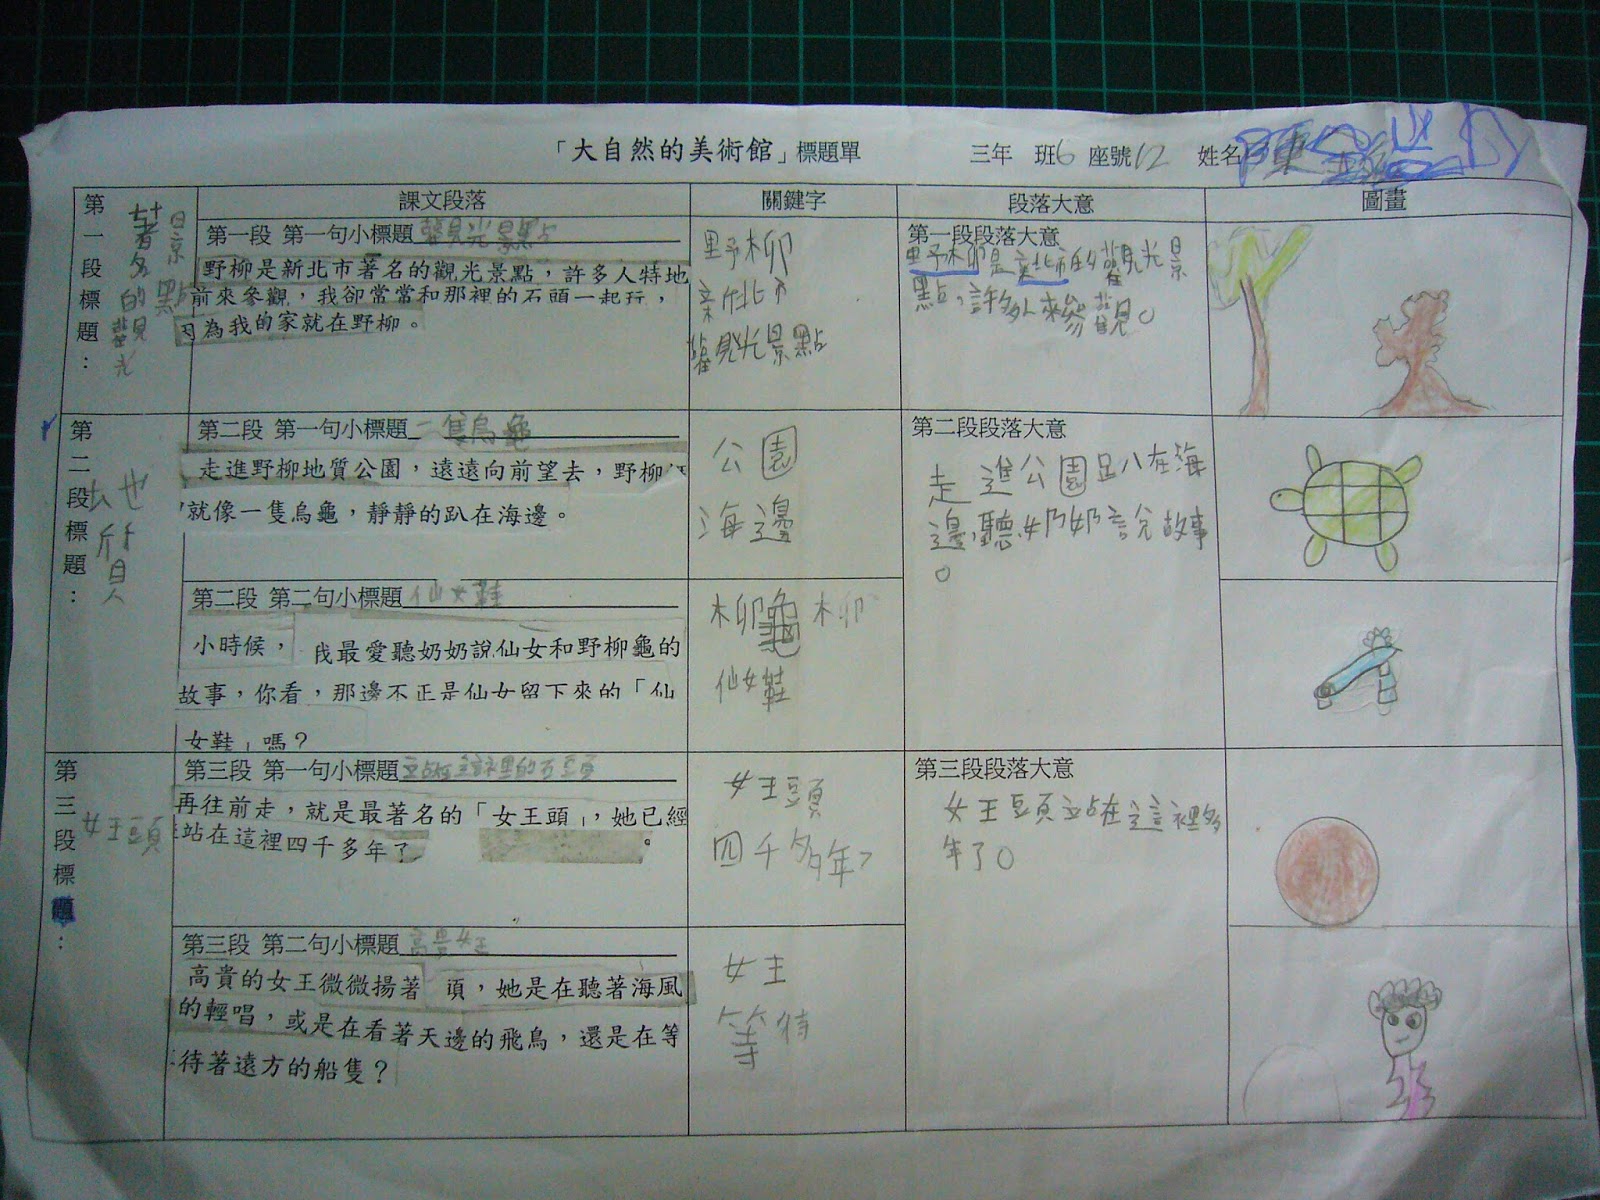 「大自然的美術館」標題單 三年 班6 座號12 姓名
第一段標題： 著名的觀光景點
課文段落
關鍵字
段落大意
圖畫
第一段 第一句小標題 觀光景點
野柳是新北市著名的觀光景點，許多人特地
前來參觀，我卻常常和那裡的石頭一起玩，
因為我的家就在野柳。
野柳
新北市
觀光景點
第一段段落大意
野柳是新北市的觀光景
點，許多人來參觀。
第二段標題： 地質
第二段 第一句小標題 一隻烏龜
走進野柳地質公園，遠遠向前望去，野柳
就像一隻烏龜，靜靜的趴在海邊。
公園
海邊
第二段段落大意
走進公園趴在海
邊，聽奶奶說故事
。
第二段 第二句小標題 仙女鞋
小時候，我最愛聽奶奶說仙女和野柳龜的
故事，你看，那邊不正是仙女留下來的「仙
女鞋」嗎？
柳龜 柳
仙女鞋
第三段標題： 女王頭
第三段 第一句小標題 站在這裡的石頭
再往前走，就是最著名的「女王頭」，她已經
站在這裡四千多年了。
女王頭
四千多年了
第三段段落大意
女王頭站在這裡多
年了。
第三段 第二句小標題 高貴女王
高貴的女王微微揚著 頭，她是在聽著海風
的輕唱，或是在看著天邊的飛鳥，還是在等
待著遠方的船隻？
女王
等待